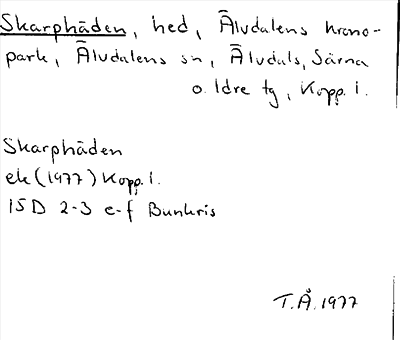 Skarphäden, hed, Älvdalens krono-
park, Älvdalens sn, Älvdals, Särna
o. Idre tg, Kopp. l.
Skarphäden
ek (1977) Kopp. l.
15D 2-3 e-f Bunkris
T.Å. 1977